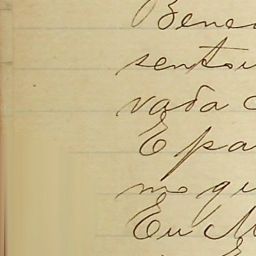 Bene
sentou
vada
E pa
no qu
Eu M